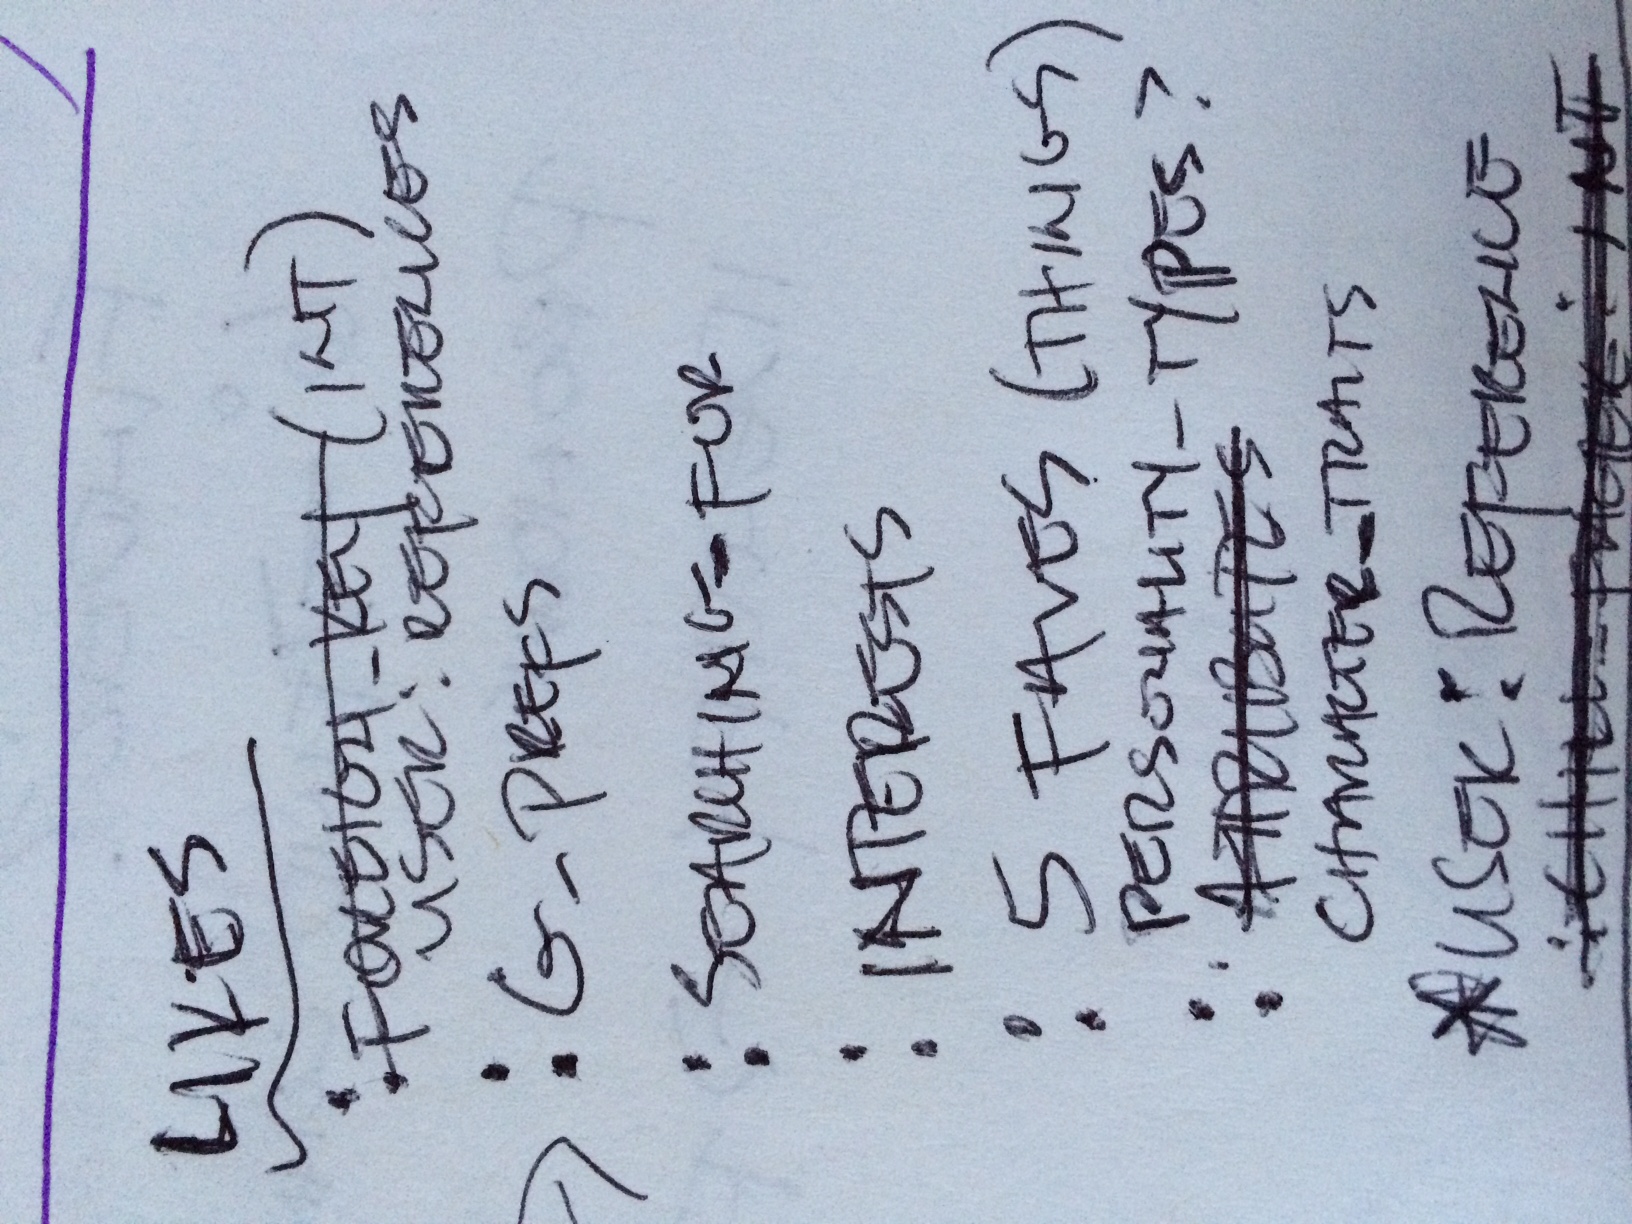 LIKES
: FOREIGN-KEY (INT)
USER: REFERENCES
: G-PREFS
: SEARCHING-FOR
: INTERESTS
: 5 FAVES (THINGS)
PERSONALITY-TYPES?
: ATTRIBUTES
CHARACTER-TRAITS
*USER: REFERENCE